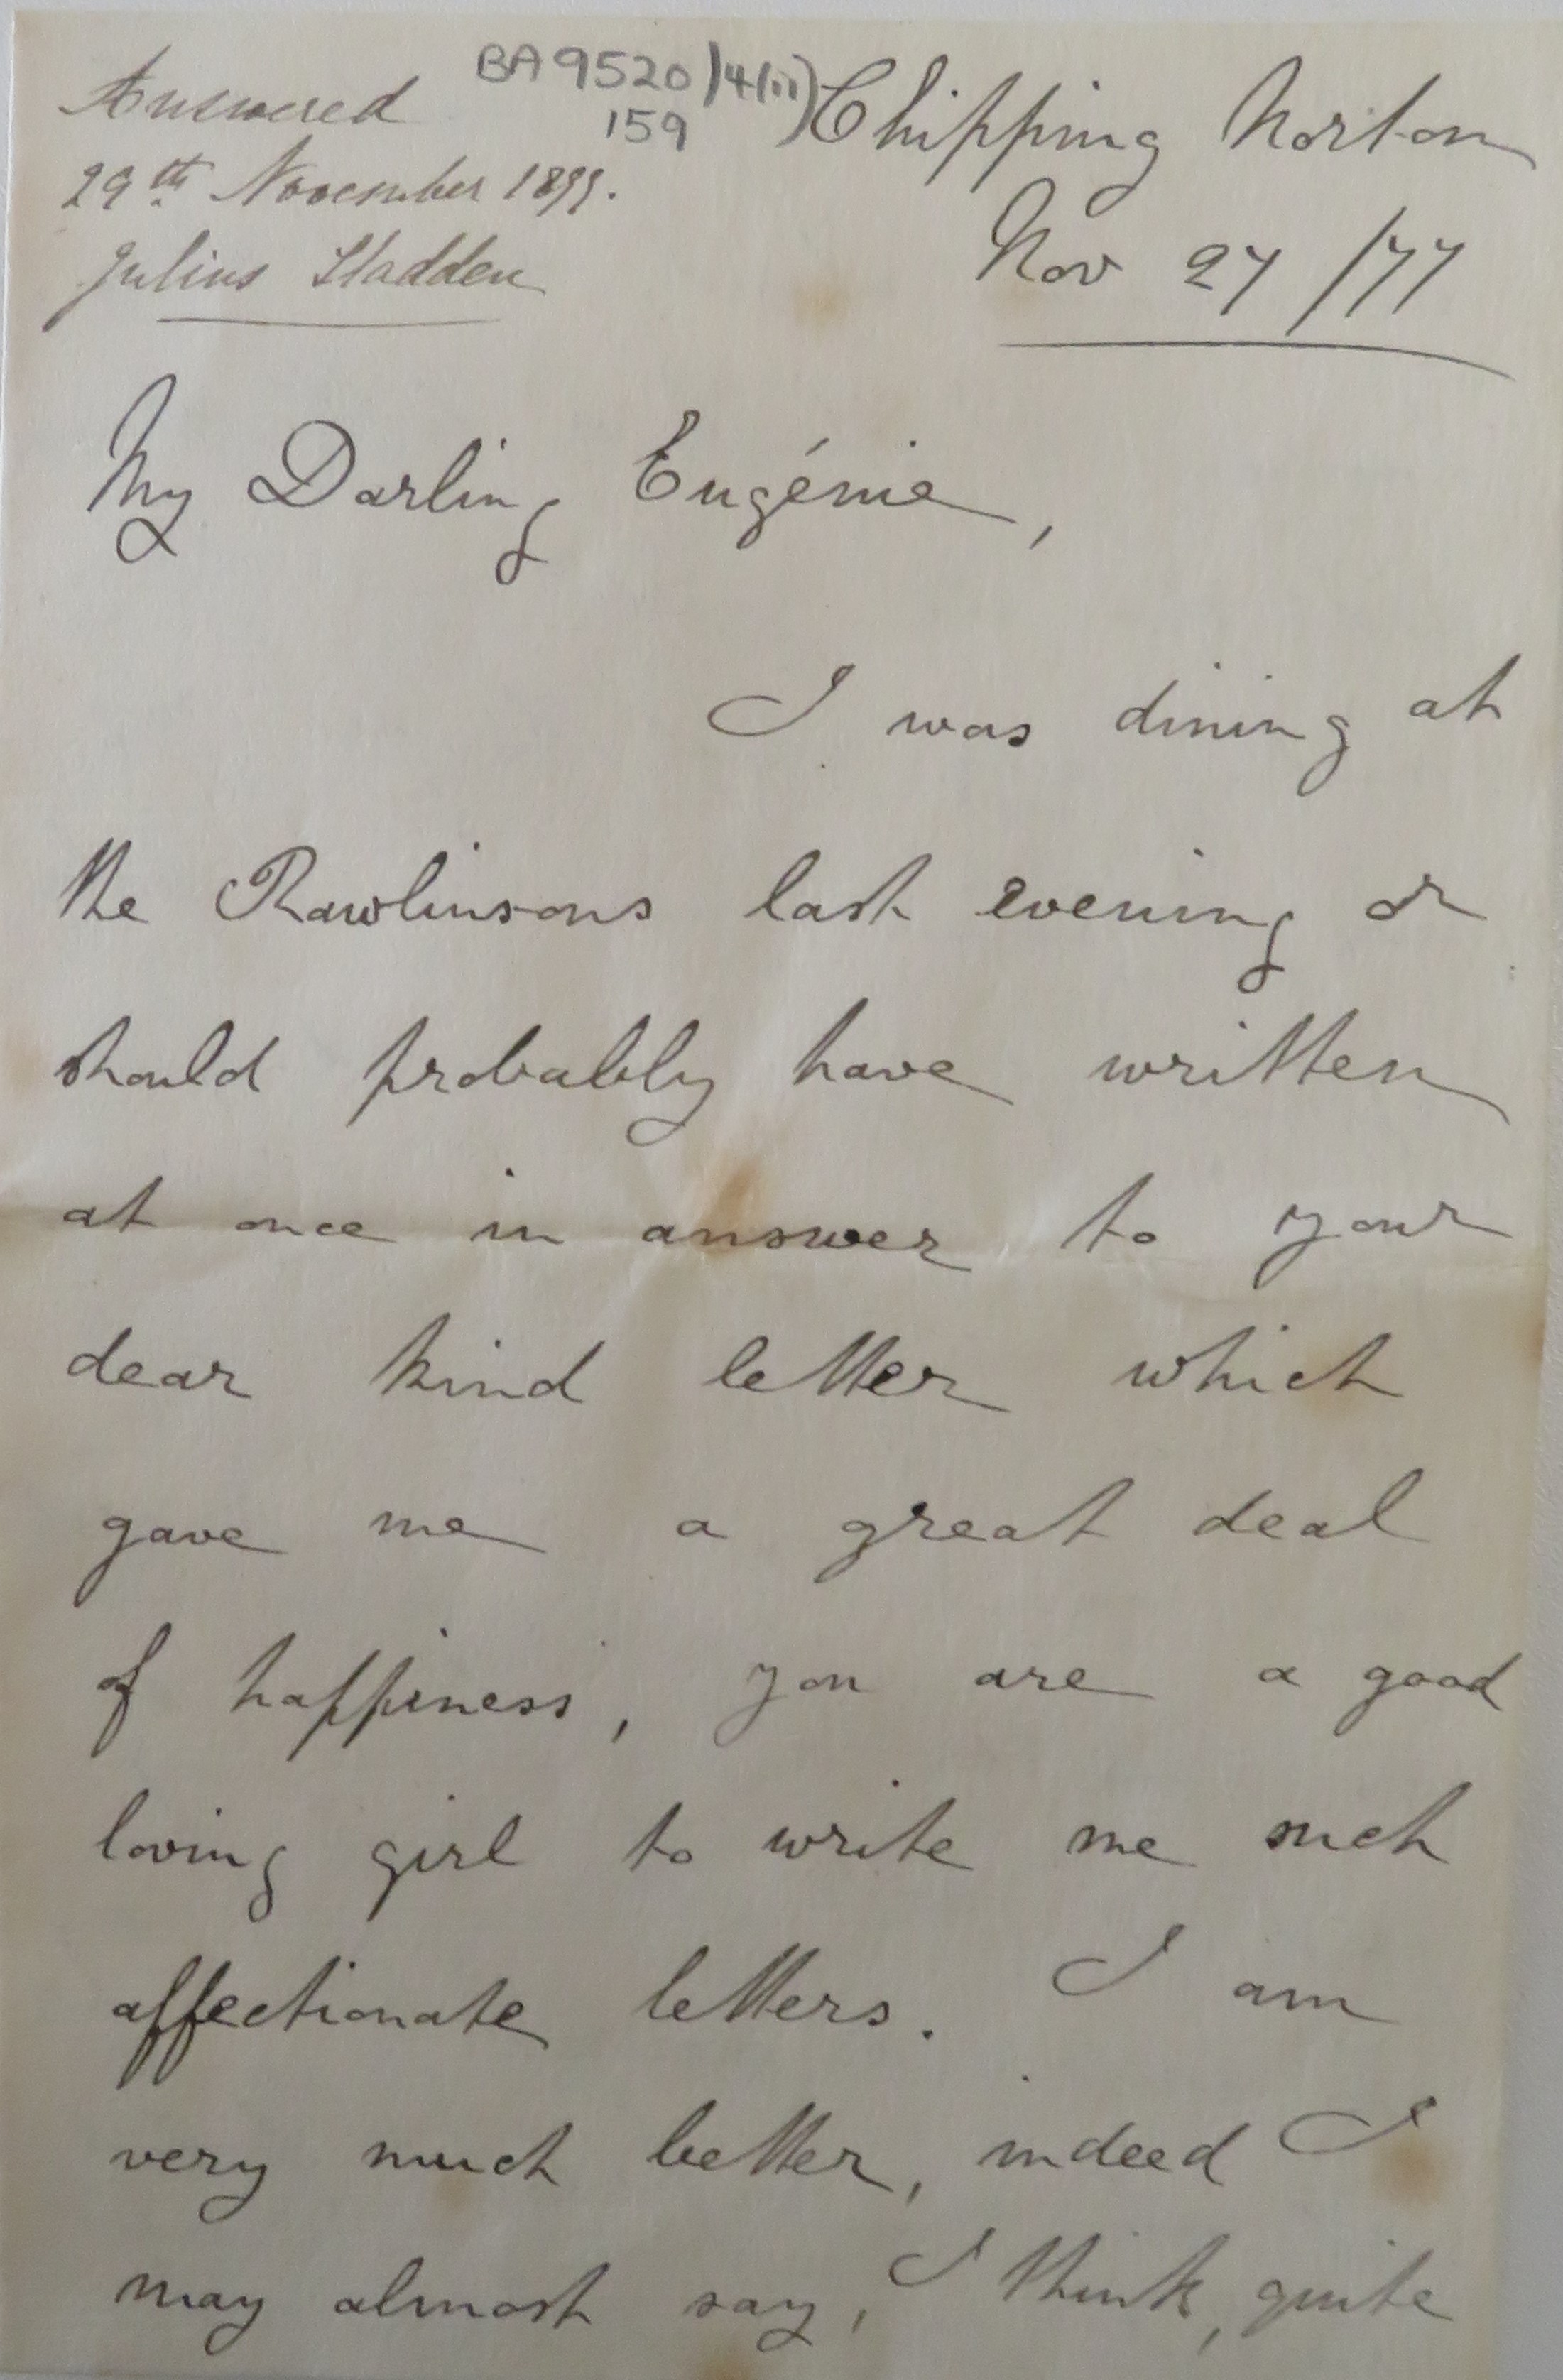 BA 9520/4(iii)
159
Answered
29th November 1877.
Julius Sladden
Chipping Norton
Nov 27/77
My Darling Eugénie,
I was dining at
the Rawlinsons last evening or
should probably have written
at once in answer to your
dear kind letter which
gave me a great deal
of happiness, you are a good
loving girl to write me such
affectionate letters. I am
very much better, indeed I
may almost say, I think, quite